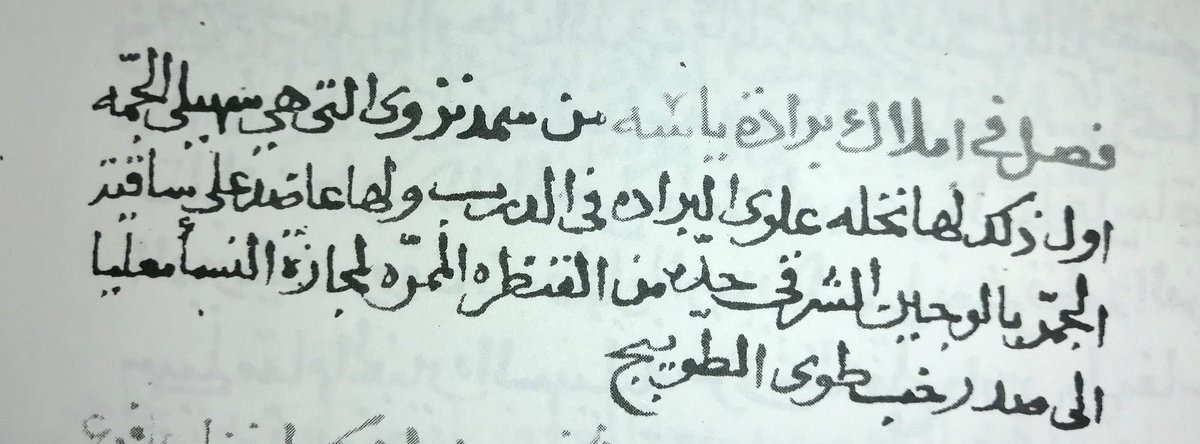 فصل في املاك برادة يا سه من سمد نزوى التي هي سهيلي الجمّه
اول ذلك لها نخله علوى البراده في الدرب ولها عاضد على ساقية
الجمّه بالوجين الشرقي حدّه من القنطره الممرّه لمجازة النسأ معليا
الى صدر خب طوى الطويبج